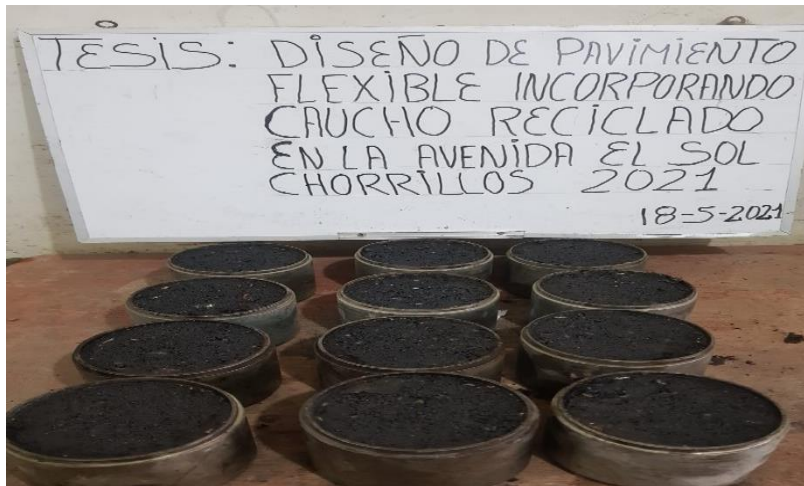 TESIS: DISEÑO DE PAVIMIENTO
FLEXIBLE INCORPORANDO
CAUCHO RECICLADO
EN LA AVENIDA EL SOL
CHORRILLOS 2021
18-5-2021